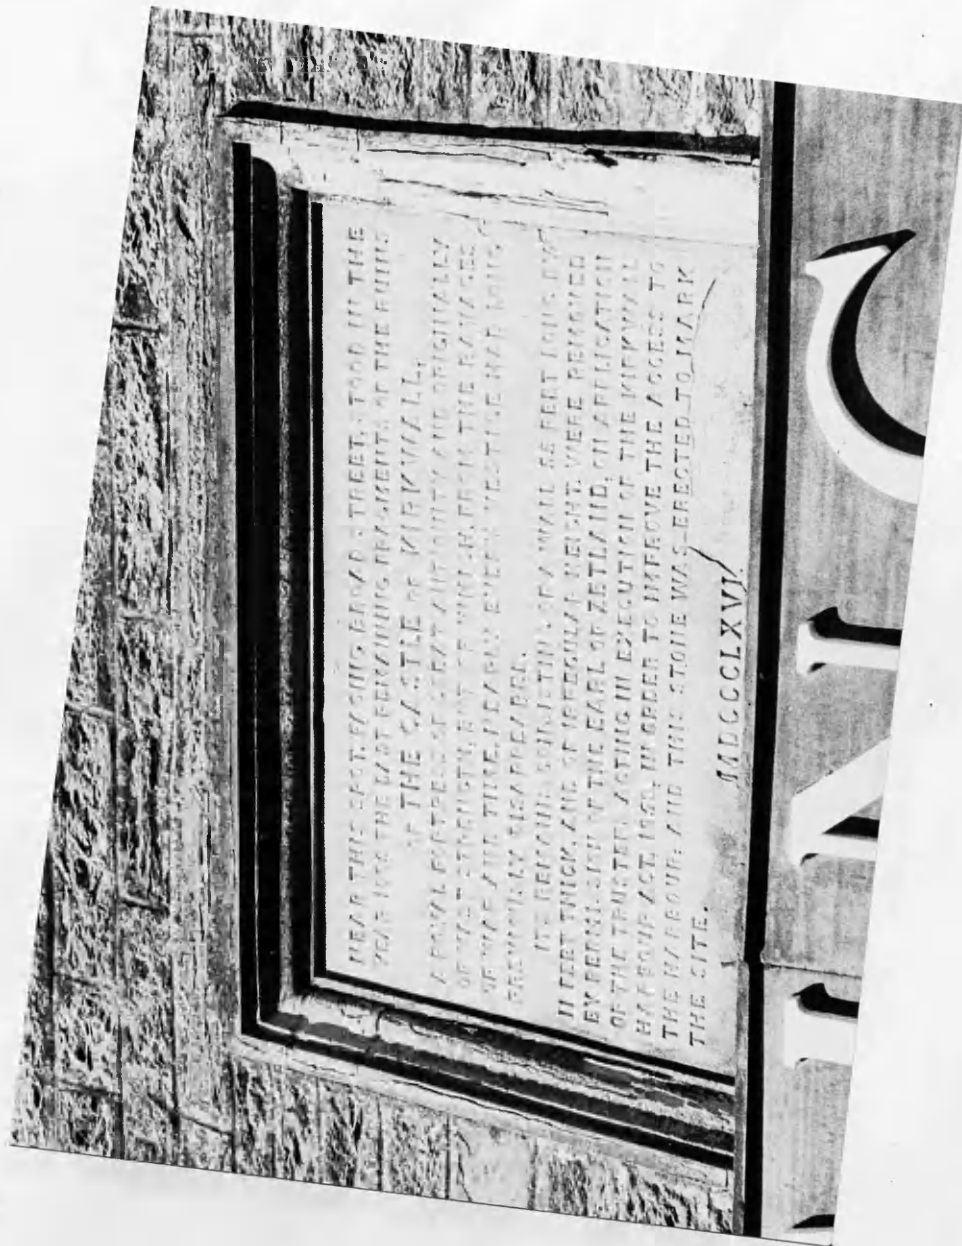 NEAR THIS SPOT, FACING BROAD STREET, STOOD IN THE
YEAR 1865 THE LAST REMAINING FRAGMENTS OF THE RUINS
OF THE CASTLE OF KIRKWALL,
A ROYAL FORTRESS OF GREAT ANTIQUITY AND ORIGINALLY
OF VAST STRENGTH, BUT OF WHICH, FROM THE RAVAGES
OF WAR AND TIME, NEARLY EVERY VESTIGE HAD LONG
PREVIOUSLY DISAPPEARED.
ITS REMAINS CONSISTING OF A WALL 55 FEET LONG BY
11 FEET THICK, AND OF IRREGULAR HEIGHT, WERE REMOVED
BY PERMISSION OF THE EARL OF ZETLAND, ON APPLICATION
OF THE TRUSTEES ACTING IN EXECUTION OF THE KIRKWALL
HARBOUR ACT, 1859, IN ORDER TO IMPROVE THE ACCESS TO
THE HARBOUR; AND THIS STONE WAS ERECTED TO MARK
THE SITE.
MDCCCLXVI.